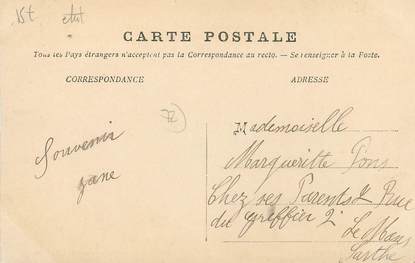 15t état
CARTE POSTALE
Tous les Pays étrangers n'acceptent pas la Correspondance au recto. — Se renseigner à la Poste.
CORRESPONDANCE
ADRESSE
72
Mademoiselle
Souvenir
Margueritte Pons
Chez ses Parents 2 Rue
du greffier 2
Le Mans
Sarthe